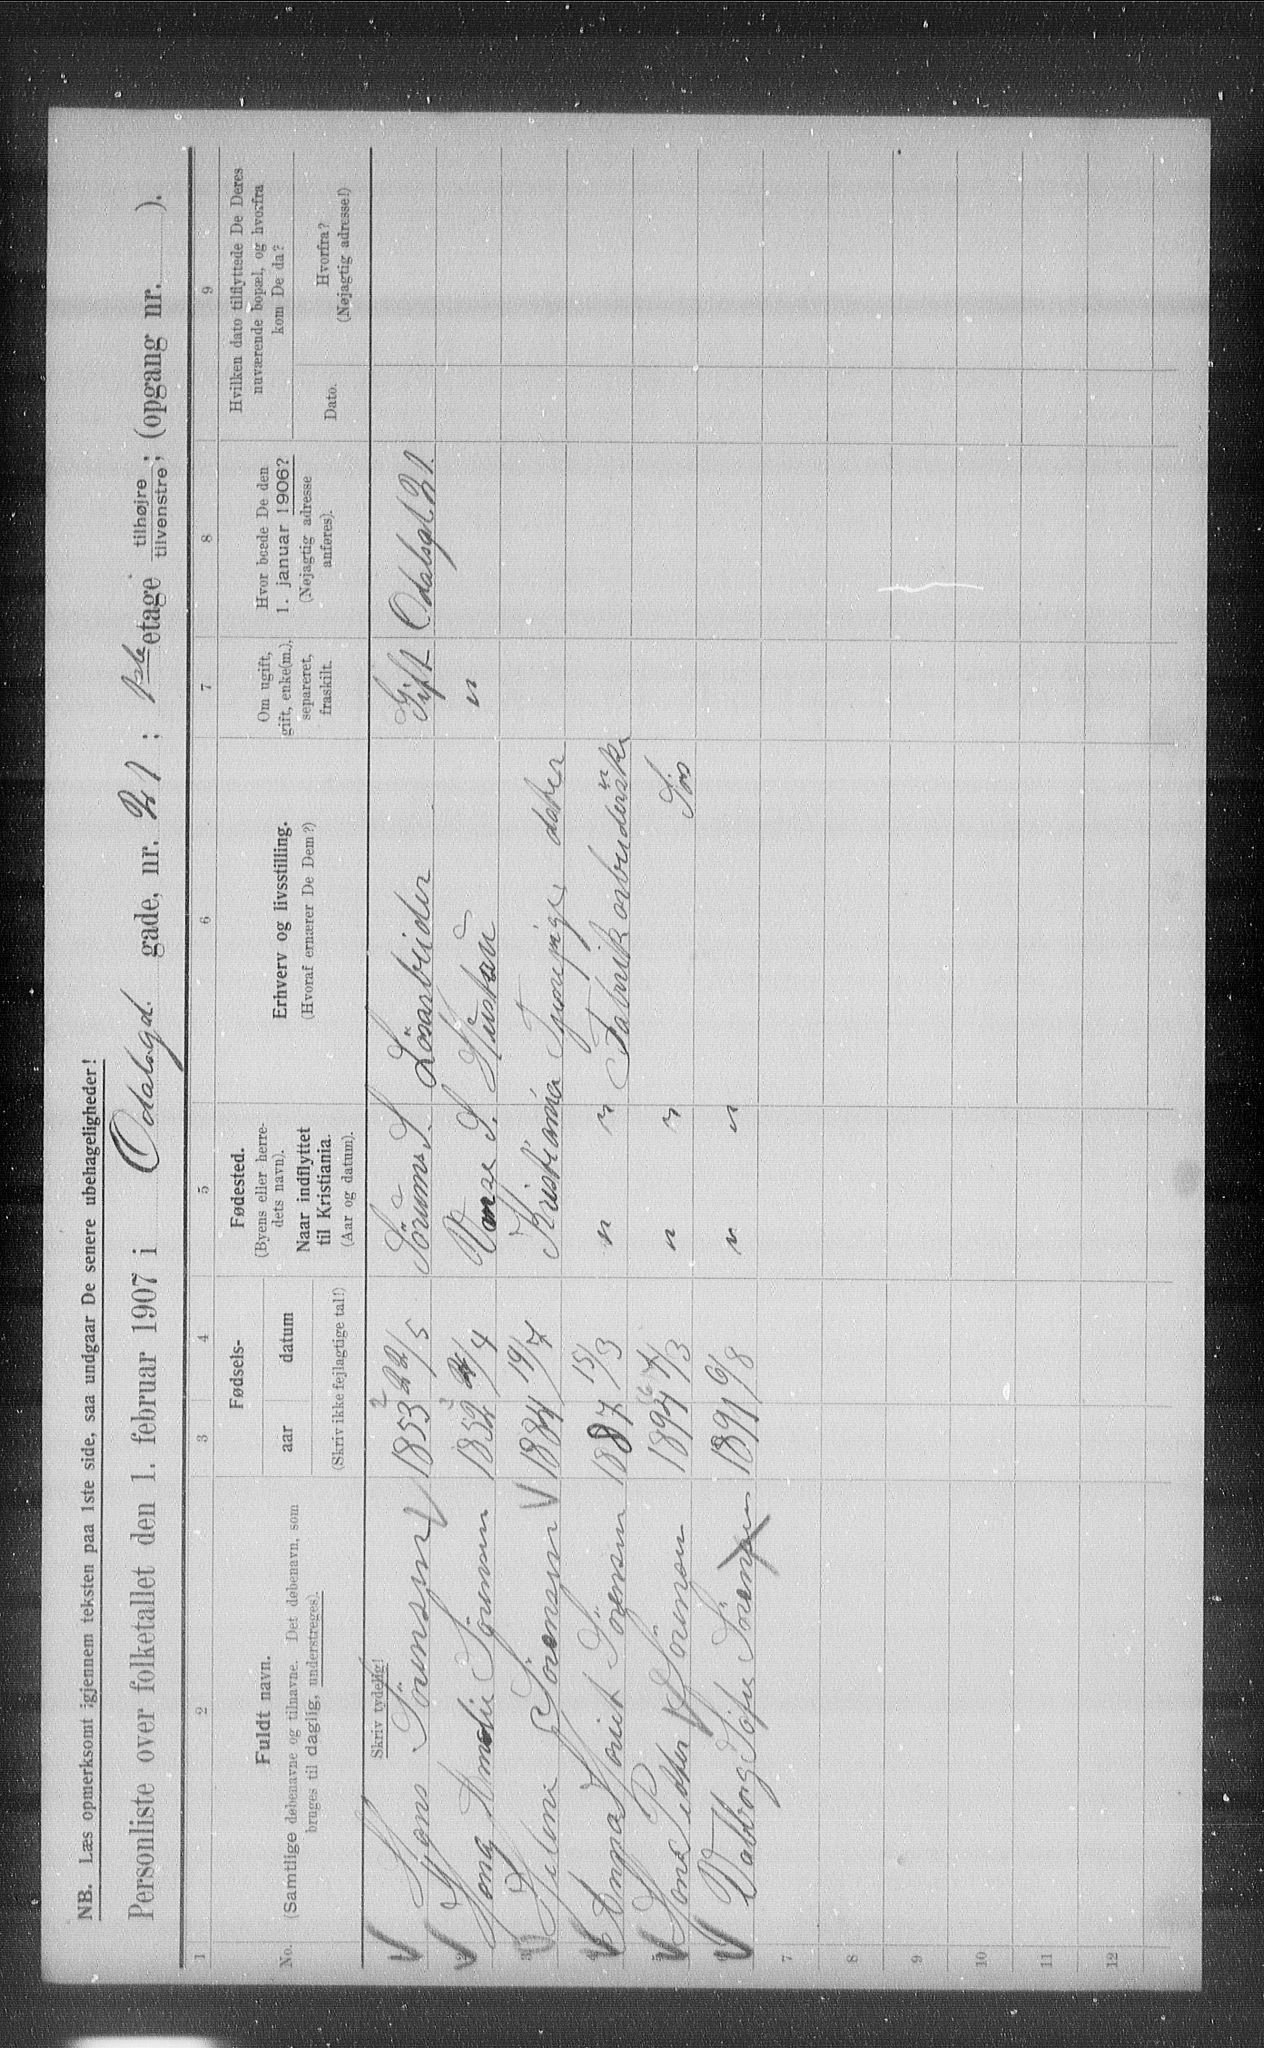 NB. Læs opmerksomt igjennem teksten paa 1ste side, saa undgaar De senere ubehageligheder!
Personliste over folketallet den 1. februar 1907 i Odalsgd. gade, nr. 21; 1ste etage tilhøjre tilvenstre; (opgang nr. ).
1 2 3 4 5 6 7 8 9
No.
Fuldt navn.
(Samtlige døbenavne og tilnavne. Det døbenavn, som
bruges til daglig, understreges).
Fødsels-
aar datum
(Skriv ikke fejlagtige tal!)
Fødested.
(Byens eller herre-
dets navn).
Naar indflyttet
til Kristiania.
(Aar og datum).
Erhverv og livsstilling.
(Hvoraf ernærer De Dem?)
Om ugift,
gift, enke(m.),
separeret,
fraskilt.
Hvor boede De den
1. januar 1906?
(Nøjagtig adresse
anføres).
Hvilken dato tilflyttede De Deres
nuværende bopæl, og hvorfra
kom De da?
Dato.
Hvorfra?
(Nøjagtig adresse!)
Skriv tydelig!
Sörensen 1853 22/5 Sörum S. Lösarbeider Gift Odalsgt 21.
2 Amalie Sörensen 1852 /4 S. Hustru "
3 Sörensen 1884 19/7 Kristiania Tjenepige datter
Anna Sörensen 1887 15/3 " " Fabrikarbeiderske "
Petter Sörensen 1894 /3 " " Sön
Valborg Sofie Sörensen 1891 6/8 " "
7
8
9
10
11
12